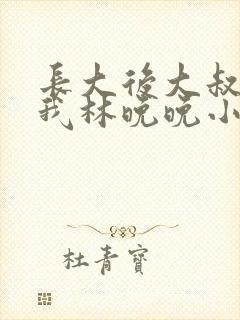 長大後大叔
我林晚晚小
杜青寶